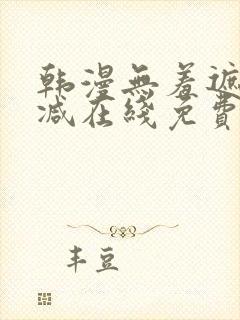 韩漫無羞遮
减在綫免費
丰豆